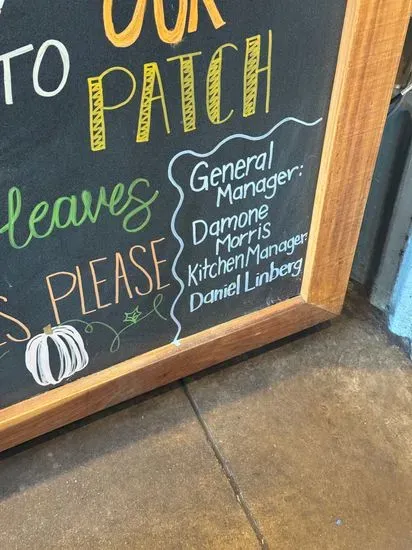 OUR
TO
PATCH
leaves
PLEASE
General
Manager:
Damone
Morris
Kitchen Manager:
Daniel Linberg